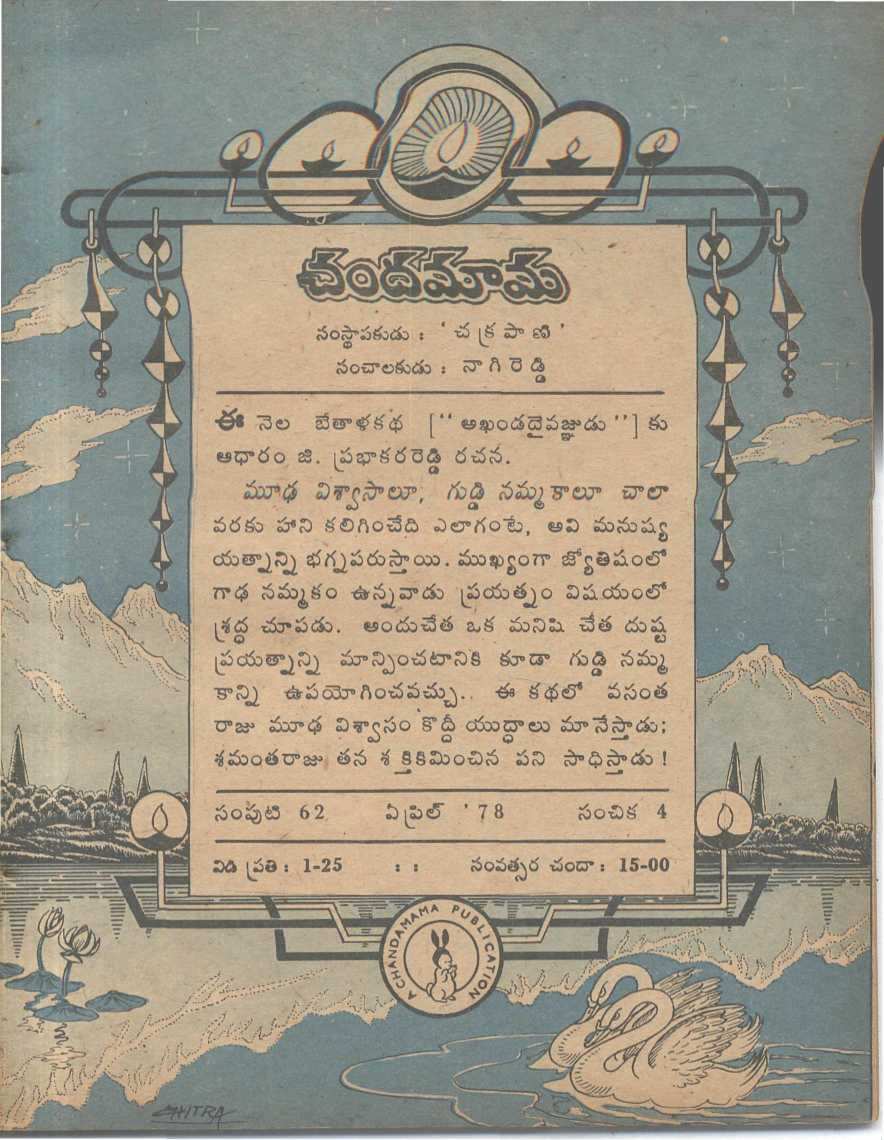 చందమామ
సంస్థాపకుడు : ' చక్రపాణి '
సంచాలకుడు : నాగిరెడ్డి
ఈ నెల బేతాళకథ [“ అఖండదైవజ్ఞుడు ”] కు
ఆధారం జి. ప్రభాకరరెడ్డి రచన.
మూఢ విశ్వాసాలూ, గుడ్డి నమ్మకాలూ చాలా
వరకు హాని కలిగించేది ఎలాగంటే, అవి మనుష్య
యత్నాన్ని భగ్నపరుస్తాయి. ముఖ్యంగా జ్యోతిషంలో
గాఢ నమ్మకం ఉన్నవాడు ప్రయత్నం విషయంలో
శ్రద్ధ చూపడు. అందుచేత ఒక మనిషి చేత దుష్ట
ప్రయత్నాన్ని మాన్పించటానికి కూడా గుడ్డి నమ్మ
కాన్ని ఉపయోగించవచ్చు.. ఈ కథలో వసంత
రాజు మూఢ విశ్వాసం కొద్దీ యుద్ధాలు మానేస్తాడు;
శమంతరాజు తన శక్తికిమించిన పని సాధిస్తాడు !
సంపుటి 62 ఏప్రిల్ ' 78 సంచిక 4
విడి ప్రతి : 1-25 : : సంవత్సర చందా : 15-00
A CHANDAMAMA PUBLICATION
CHITRA